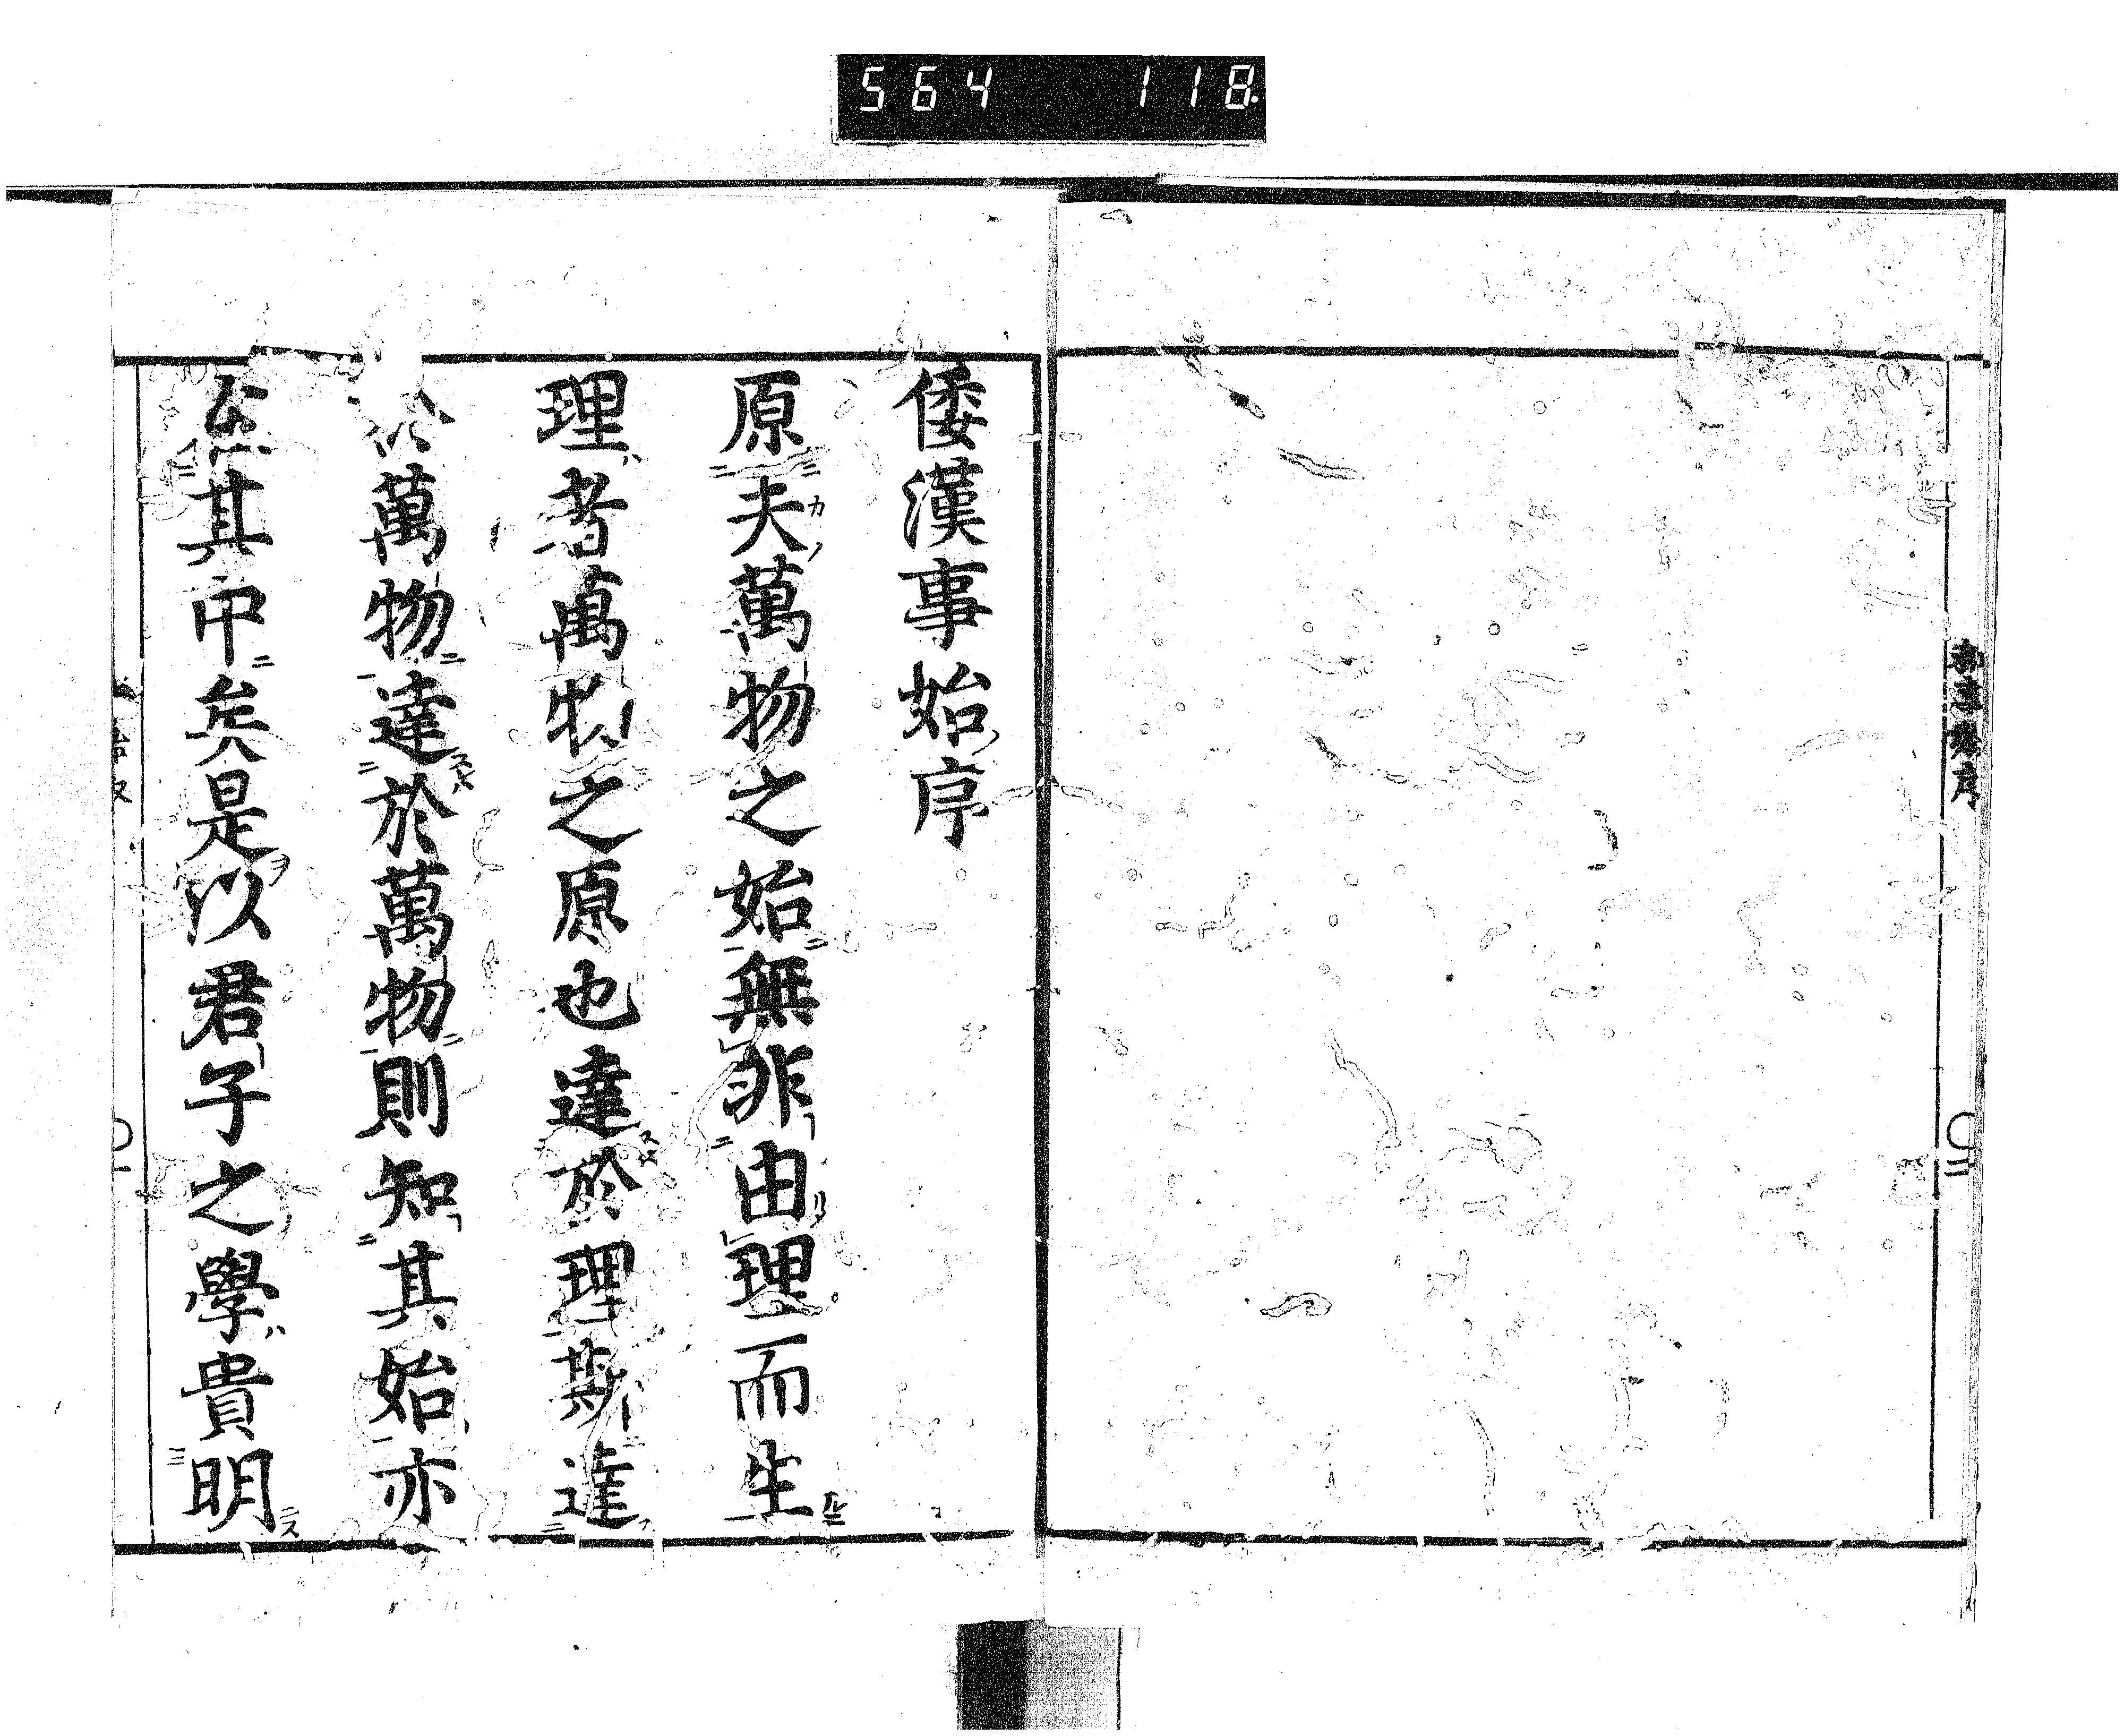 564 118
倭漢事始序
原夫萬物之始無非由理而生
理者萬物之原也達於理斯達
於萬物達於萬物則知其始亦
其中矣是以君子之學貴明